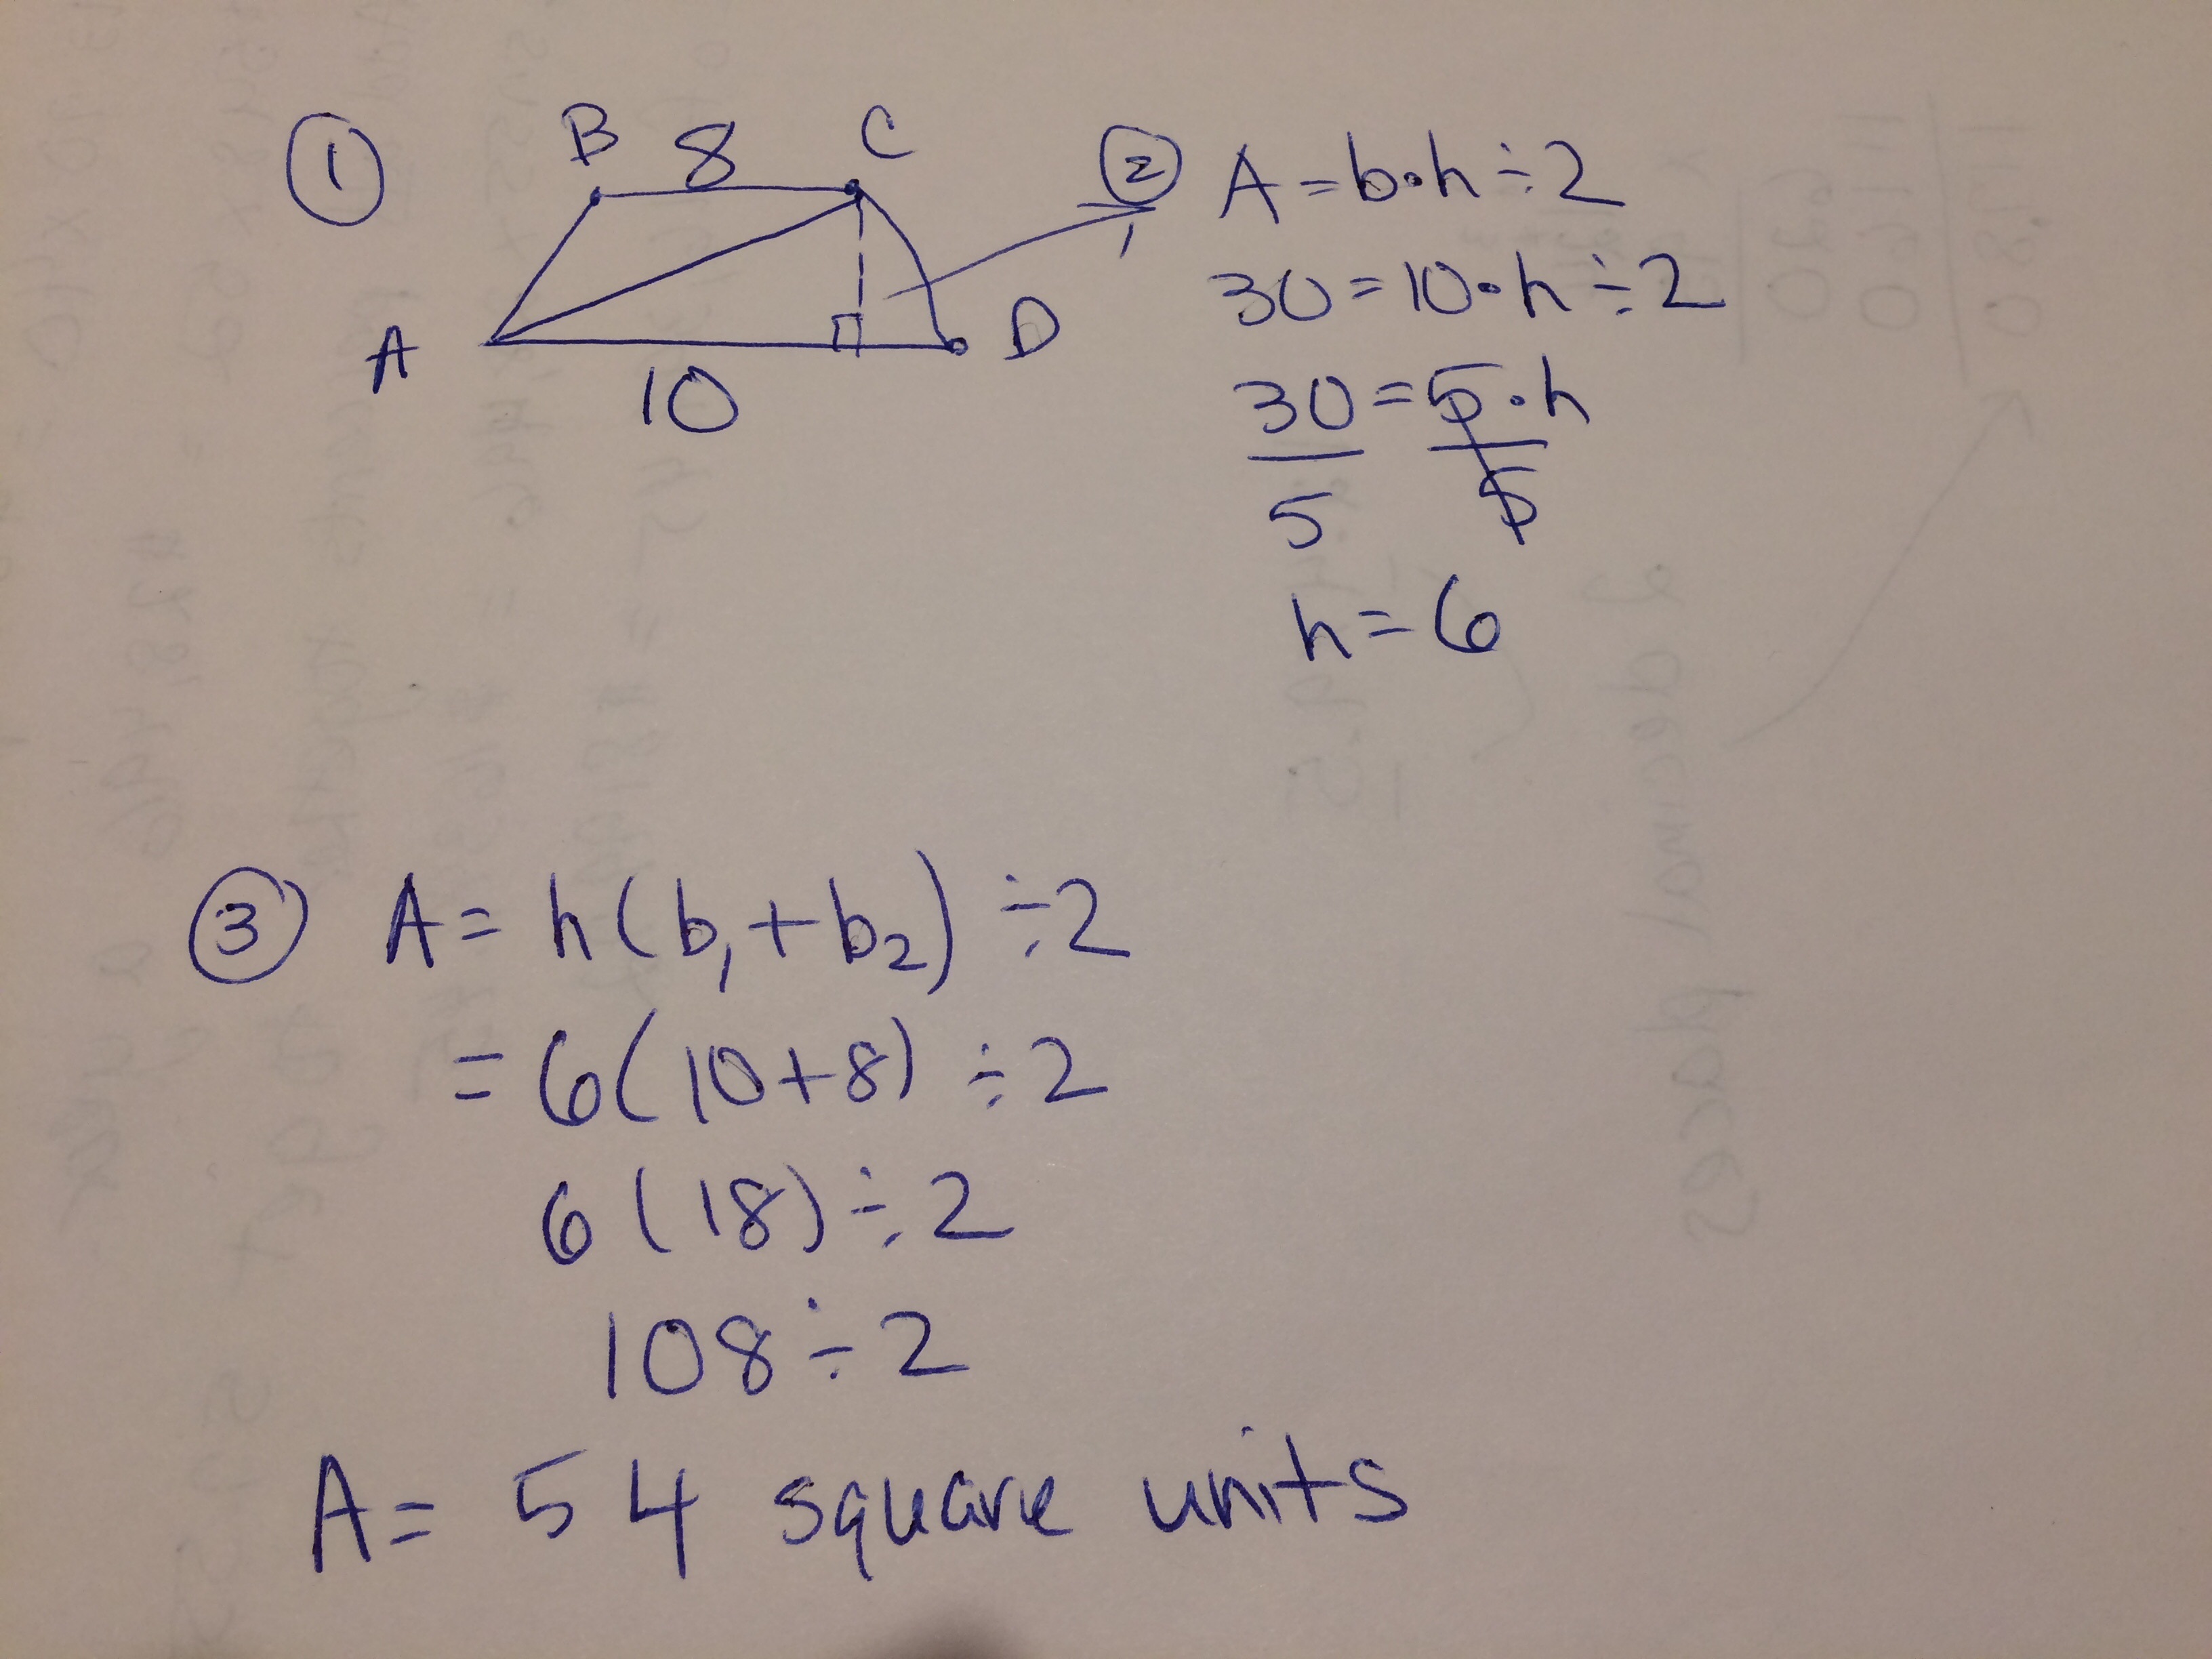 ① B 8 C
A D
10
② A = b•h ÷ 2
30 = 10•h ÷ 2
30 = 5•h
5 5
h = 6
③ A = h(b₁ + b₂) ÷ 2
= 6(10+8) ÷ 2
6(18) ÷ 2
108 ÷ 2
A = 54 square units